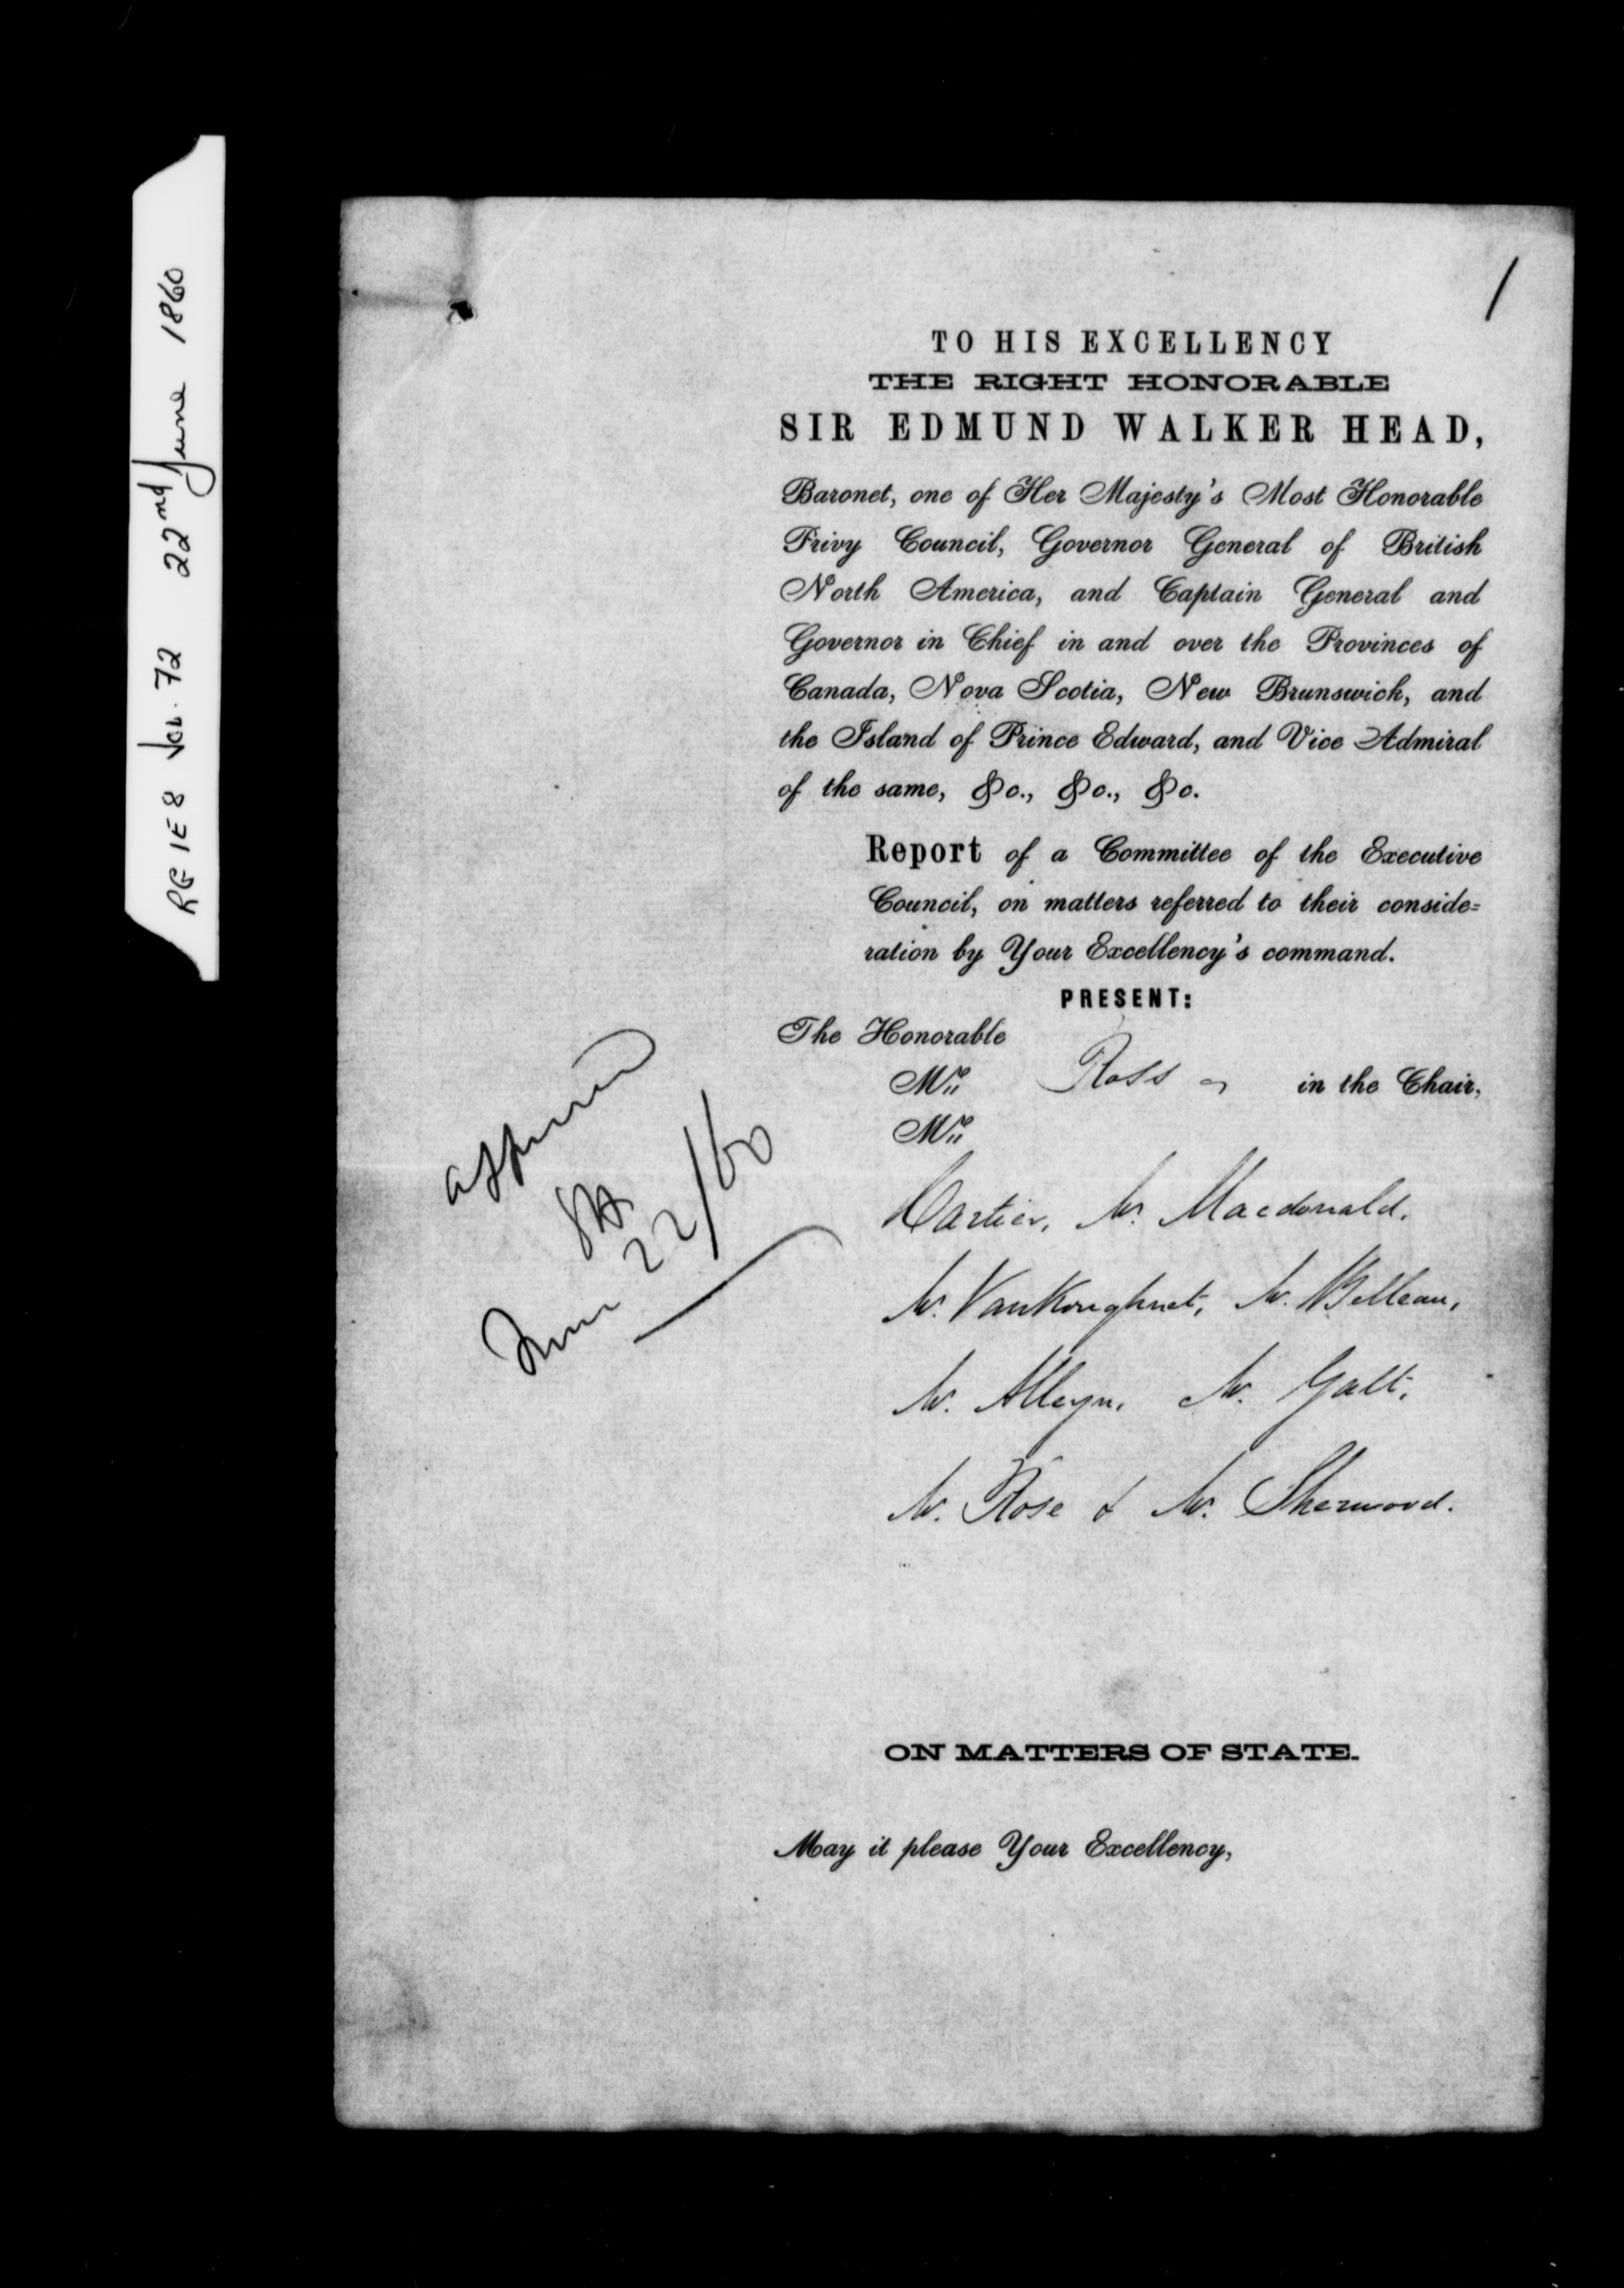 RG 1 E 8 Vol. 72 22nd June 1860
1
TO HIS EXCELLENCY
THE RIGHT HONORABLE
SIR EDMUND WALKER HEAD,
Baronet, one of Her Majesty's Most Honorable
Privy Council, Governor General of British
North America, and Captain General and
Governor in Chief in and over the Provinces of
Canada, Nova Scotia, New Brunswick, and
the Island of Prince Edward, and Vice Admiral
of the same, &c., &c., &c.
Report of a Committee of the Executive
Council, on matters referred to their conside=
ration by Your Excellency's command.
PRESENT:
The Honorable
Mr. Ross in the Chair,
Mr.
Cartier, Mr. Macdonald.
Mr. VanKoughnet, Mr. Belleau,
Mr. Alleyn, Mr. Galt,
Mr. Rose & Mr. Sherwood.
approved
June 22/60
ON MATTERS OF STATE.
May it please Your Excellency,